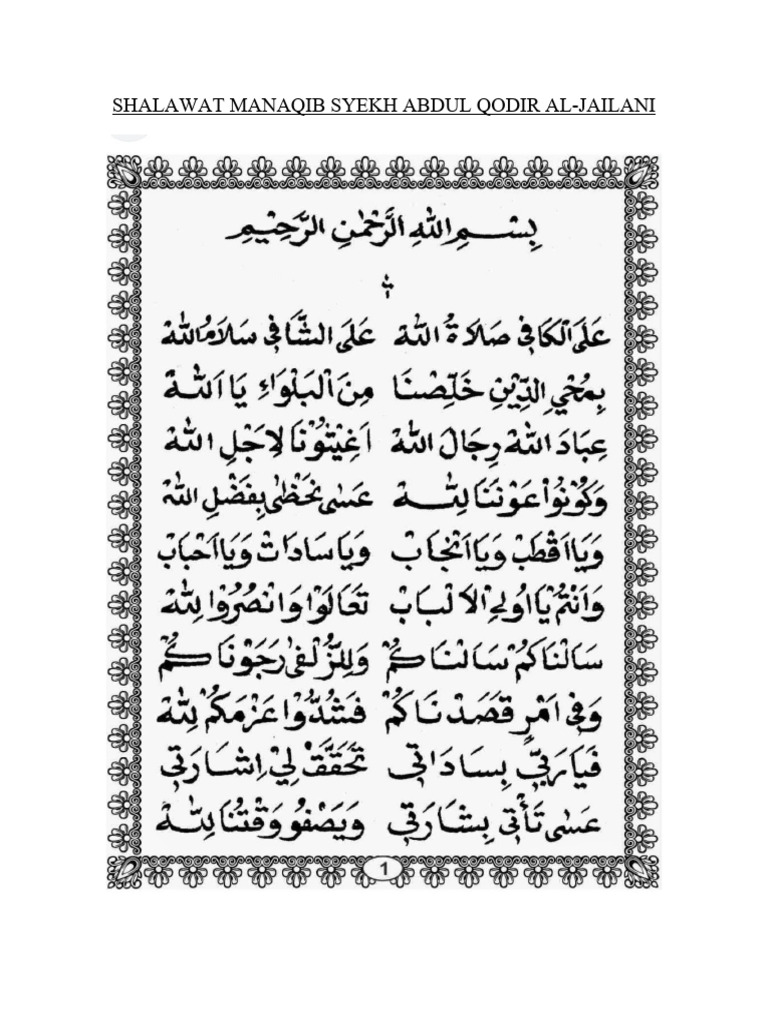 SHALAWAT MANAQIB SYEKH ABDUL QODIR AL-JAILANI
بِسْمِ اللهِ الرَّحْمٰنِ الرَّحِيْمِ
عَلَى الْكَافِيْ صَلَاةُ اللهْ عَلَى الشَّافِيْ سَلَامُ اللهْ
بِمُحْيِ الدِّيْنِ خَلِّصْنَا مِنَ الْبَلْوَاءِ يَا اَللهْ
عِبَادَ اللهْ رِجَالَ اللهْ اَغِيْثُوْنَا لِاَجْلِ اللهْ
وَكُوْنُوْا عَوْنَنَا لِلّٰهْ عَسٰى نَحْظٰى بِفَضْلِ اللهْ
وَيَا اَقْطَبْ وَيَا اَنْجَابْ وَيَا سَادَاتْ وَيَا اَحْبَابْ
وَاَنْتُمْ يَا اُولِى الْاَلْبَابْ تَعَالَوْا وَانْصُرُوْا لِلّٰهْ
سَالْنَاكُمْ سَالْنَاكُمْ وَلِلزُّلْفٰى رَجَوْنَاكُمْ
وَفِيْ اَمْرٍ قَصَدْنَاكُمْ فَشُدُّوْا عَزْمَكُمْ لِلّٰهْ
فَيَارَبِّيْ بِسَادَاتِيْ تَحَقَّقْ لِيْ اِشَارَتِيْ
عَسٰى تَأْتِيْ بِشَارَتِيْ وَيَصْفُوْ وَقْتُنَا لِلّٰهْ
1